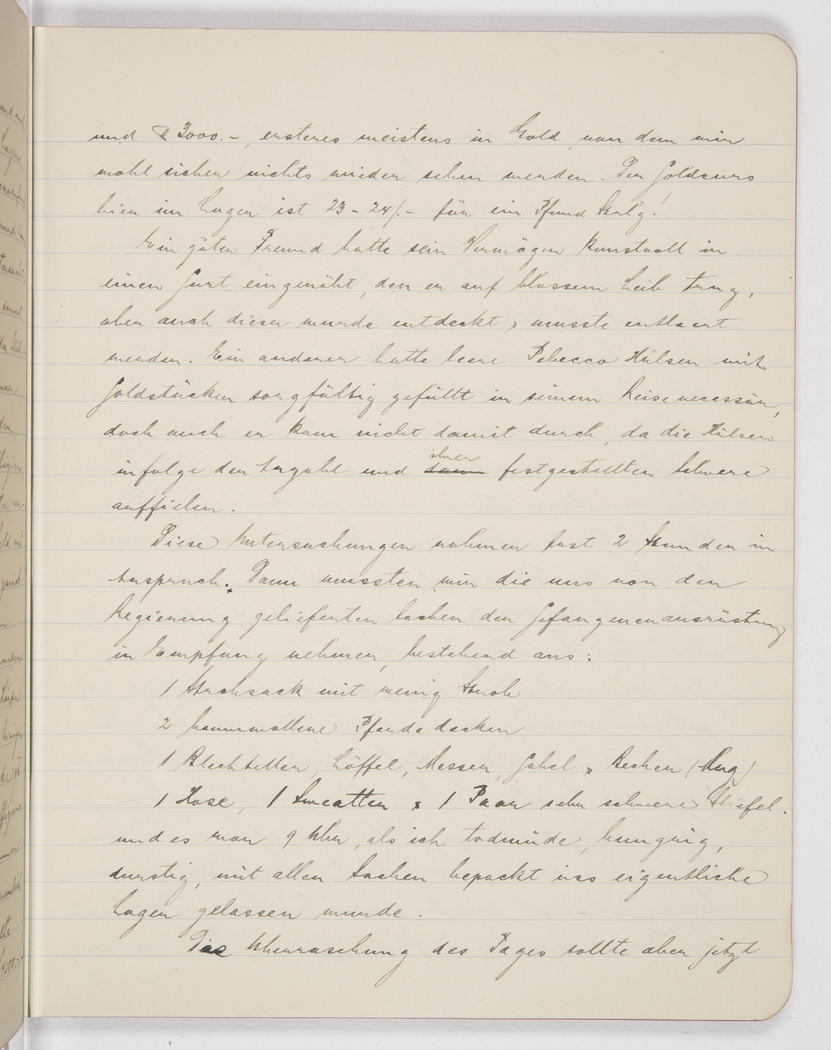 und ₤ 3000.-, ersteres meistens in Gold, von dem wir
wohl sicher nichts wieder sehen werden. Der Goldcurs
hier im Lager ist 23 - 24/.- für ein Pfund Sterlg!
Ein guter Freund hatte sein Vermögen kunstvoll in
einen Gurt eingenäht, den er auf blossem Leib trug,
aber auch dieser wurde entdeckt & musste entleert
werden. Ein anderer hatte leere Rebecco Hülsen mit
Goldstücken sorgfältig gefüllt in seinem Reisenecessär,
doch auch er kam nicht damit durch, da die Hülsen
infolge der Anzahl und ihrer festgestellten Schwere
auffielen.
Diese Untersuchungen nahmen fast 2 Stunden in
Anspruch. Dann mussten wir die uns von der
Regierung gelieferten Sachen der Gefangenenausrüstung
in Empfang nehmen, bestehend aus:
1 Strohsack mit wenig Stroh
2 baumwollene Pferdedecken
1 Blechteller, Löffel, Messer, Gabel & Becher (Mug)
1 Hose, 1 Sweatter & 1 Paar sehr schwere Stiefel.
und es war 9 Uhr, als ich todmüde, hungrig,
durstig, mit allen Sachen bepackt ins eigentliche
Lager gelassen wurde.
Die Überraschung des Tages sollte aber jetzt